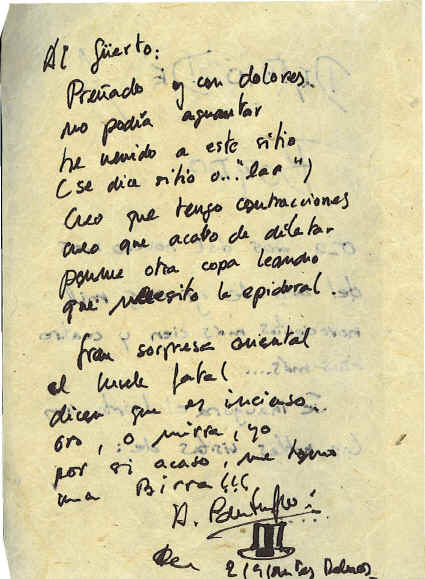 Al Güerto:
Preñado y con dolores.
no podía aguantar
he venido a este sitio
(se dice sitio o... "lar")
Creo que tengo contracciones
creo que acabo de dilatar
ponme otra copa Leandro
que necesito la epidural.
Gran sorpresa oriental
el huele fatal
dicen que es incienso.
oro, o mirra, yo
por si acaso, me tomo
una Birra!!!
A.
2/9